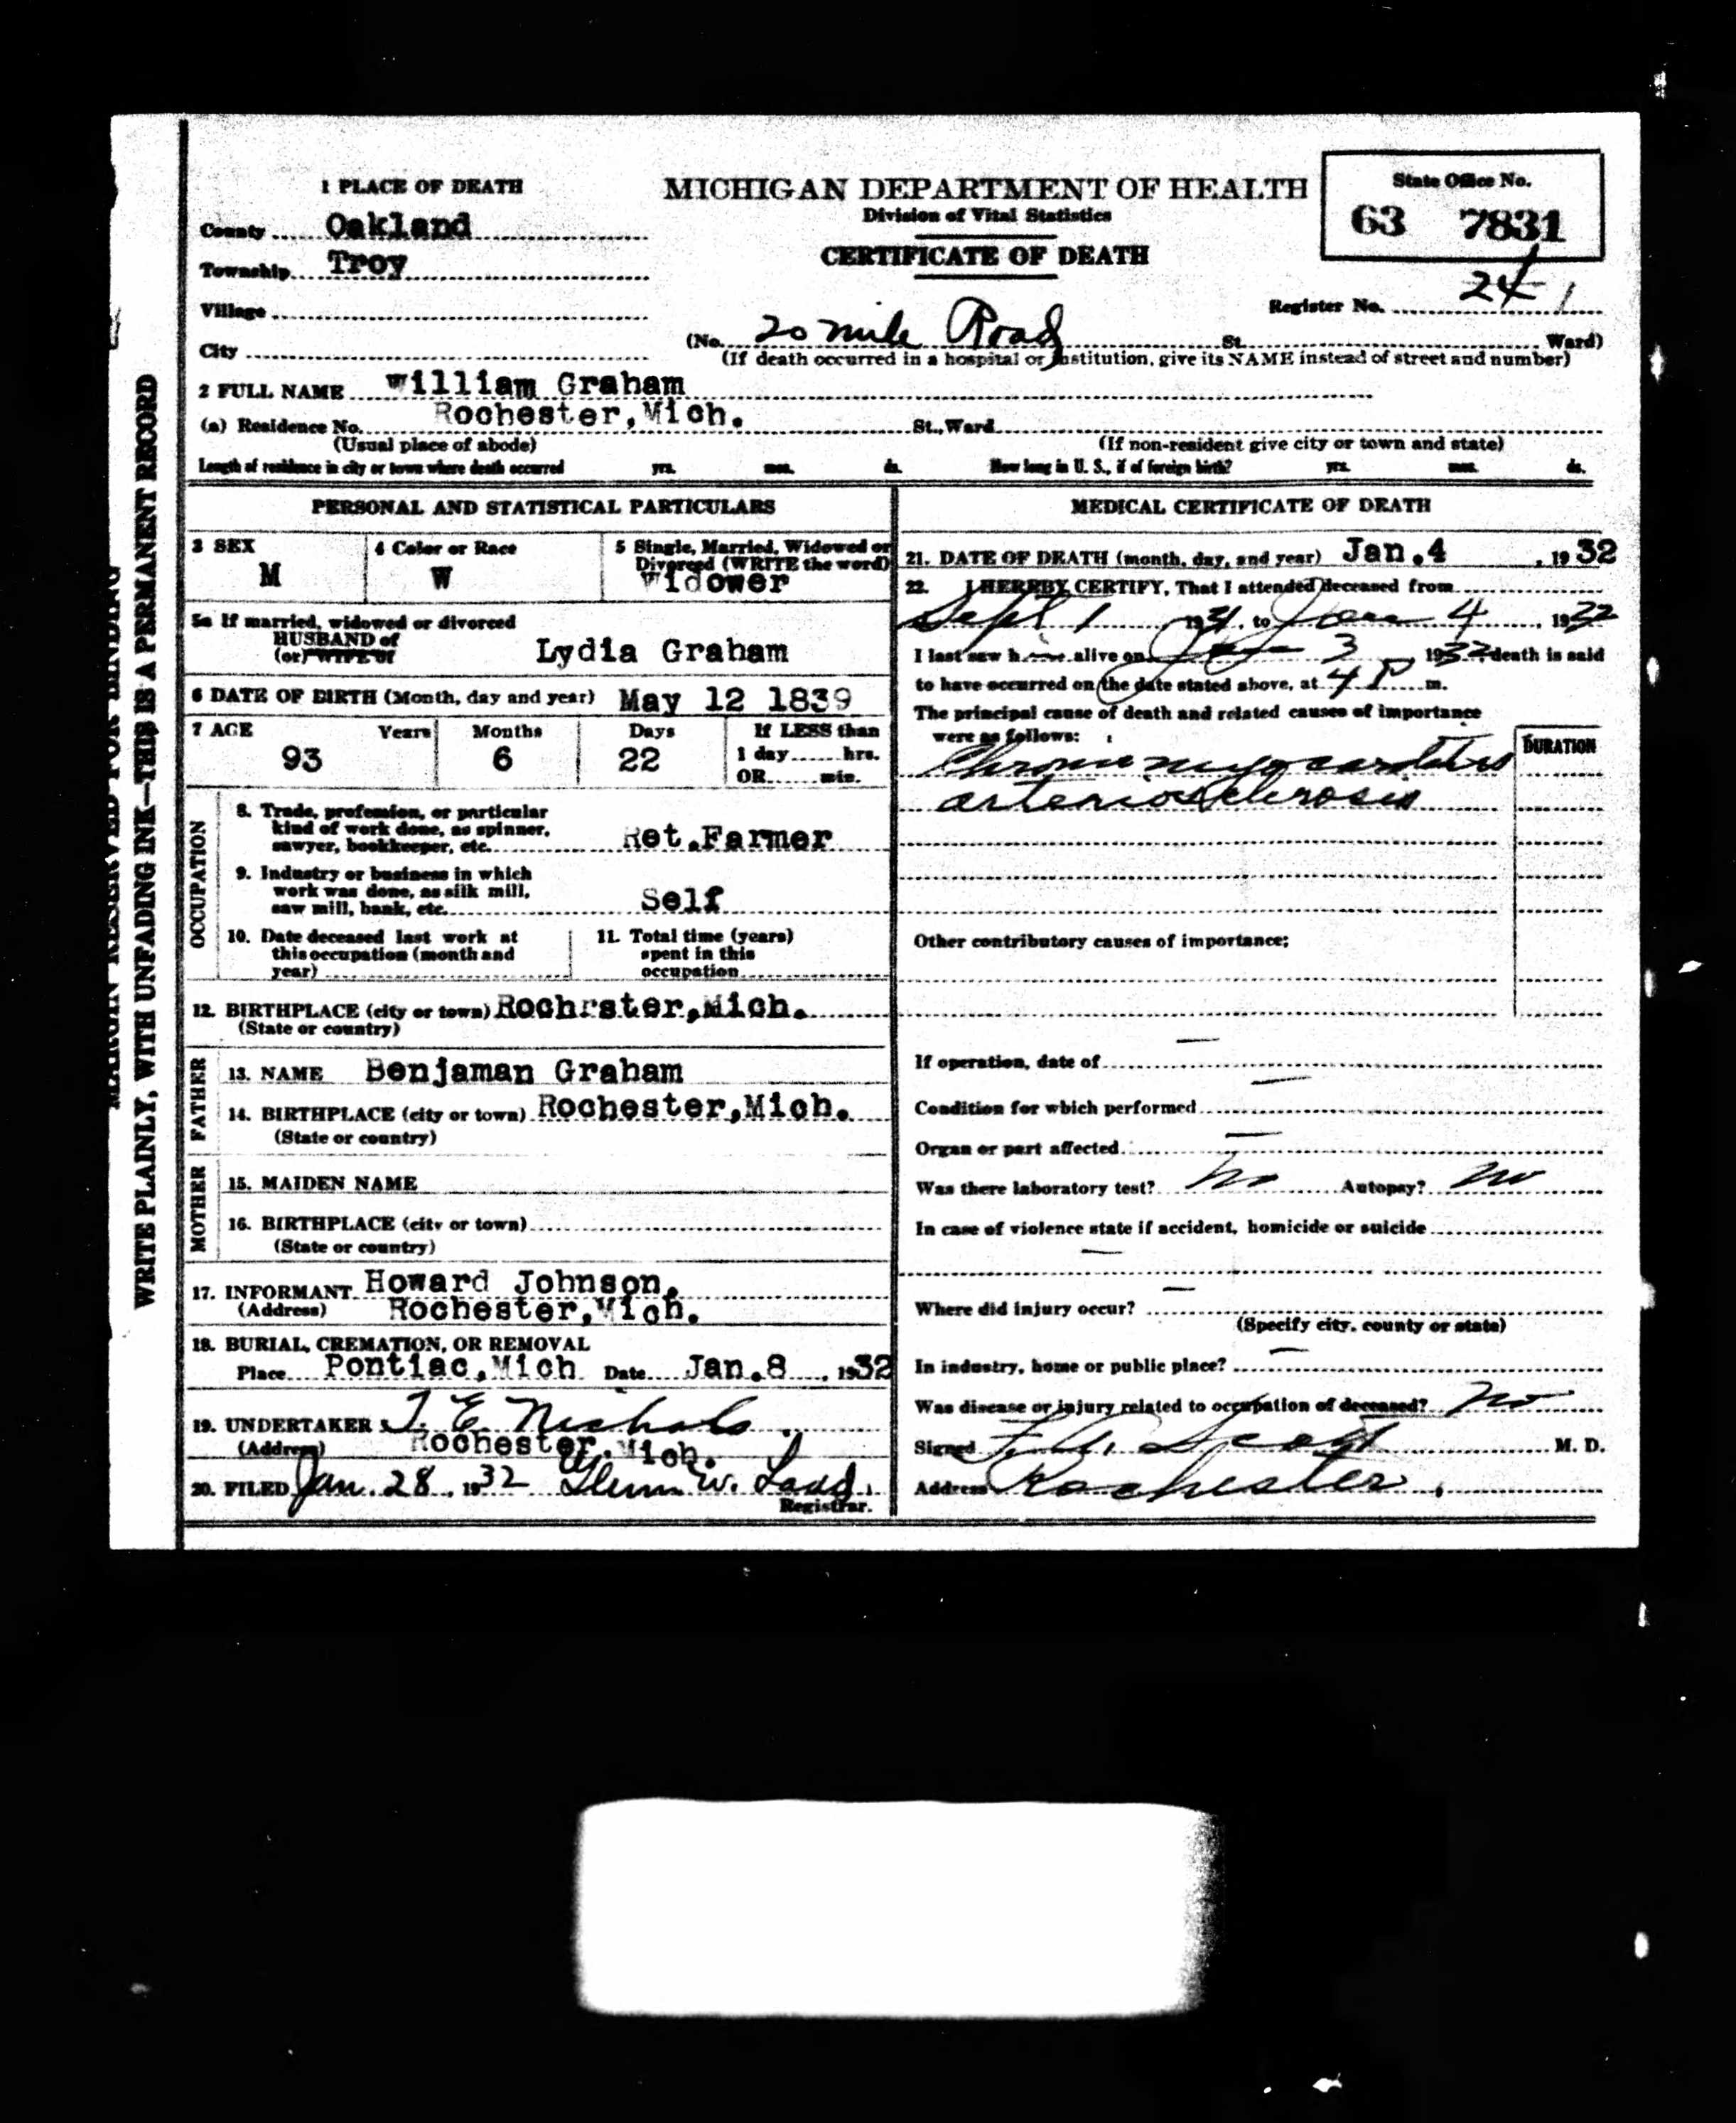 1 PLACE OF DEATH
County Oakland
Township Troy
Village
City
MICHIGAN DEPARTMENT OF HEALTH
Division of Vital Statistics
CERTIFICATE OF DEATH
State Office No.
63 7831
Register No. 24 1
(No. 20 mile Road St. Ward)
(If death occurred in a hospital or institution, give its NAME instead of street and number)
2 FULL NAME William Graham
(a) Residence No. Rochester, Mich. St., Ward
(Usual place of abode) (If non-resident give city or town and state)
Length of residence in city or town where death occurred yrs. mos. ds. How long in U. S., if of foreign birth? yrs. mos. ds.
WRITE PLAINLY, WITH UNFADING INK—THIS IS A PERMANENT RECORD
PERSONAL AND STATISTICAL PARTICULARS
3 SEX
M
4 Color or Race
W
5 Single, Married, Widowed or
Divorced (WRITE the word)
Widower
5a If married, widowed or divorced
HUSBAND of
(or) WIFE of Lydia Graham
6 DATE OF BIRTH (Month, day and year) May 12 1839
7 AGE Years Months Days If LESS than
93 6 22 1 day hrs.
OR min.
OCCUPATION
8. Trade, profession, or particular
kind of work done, as spinner,
sawyer, bookkeeper, etc. Ret. Farmer
9. Industry or business in which
work was done, as silk mill,
saw mill, bank, etc. Self
10. Date deceased last work at
this occupation (month and
year)
11. Total time (years)
spent in this
occupation
12. BIRTHPLACE (city or town) Rochrster, Mich.
(State or country)
FATHER
13. NAME Benjaman Graham
14. BIRTHPLACE (city or town) Rochester, Mich.
(State or country)
MOTHER
15. MAIDEN NAME
16. BIRTHPLACE (city or town)
(State or country)
17. INFORMANT Howard Johnson,
(Address) Rochester, Mich.
18. BURIAL, CREMATION, OR REMOVAL
Place Pontiac, Mich Date Jan. 8, 1932
19. UNDERTAKER T. E. Nichols
(Address) Rochester, Mich.
20. FILED Jan. 28, 1932 Glenn W. Ladd.
Registrar.
MEDICAL CERTIFICATE OF DEATH
21. DATE OF DEATH (month, day, and year) Jan. 4, 1932
22. I HEREBY CERTIFY, That I attended deceased from
Sept 1 1931, to Jan 4, 1932
I last saw him alive on Jan 3 1932 death is said
to have occurred on the date stated above, at 4 P m.
The principal cause of death and related causes of importance
were as follows: DURATION
Chronic myocarditis
arteriosclerosis
Other contributory causes of importance:
If operation, date of —
Condition for which performed —
Organ or part affected —
Was there laboratory test? no Autopsy? no
In case of violence state if accident, homicide or suicide
—
Where did injury occur? —
(Specify city, county or state)
In industry, home or public place? —
Was disease or injury related to occupation of deceased? no
Signed Scott M. D.
Address Rochester.